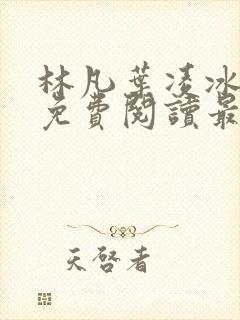 林凡葉凌冰
免費閱讀最
天啓者